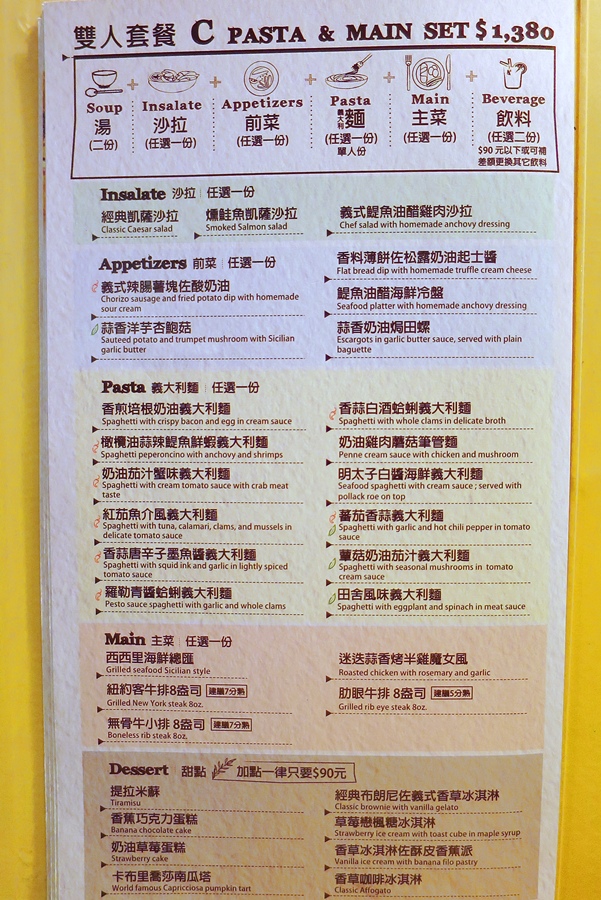 雙人套餐 C PASTA & MAIN SET $1,380
Soup
湯
(二份)
Insalate
沙拉
(任選一份)
Appetizers
前菜
(任選一份)
Pasta
義大利麵
(任選一份)
單人份
Main
主菜
(任選一份)
Beverage
飲料
(任選二份)
$90 元以下或可補
差額更換其它飲料
Insalate 沙拉 | 任選一份
經典凱薩沙拉
Classic Caesar salad
燻鮭魚凱薩沙拉
Smoked Salmon salad
義式鯷魚油醋雞肉沙拉
Chef salad with homemade anchovy dressing
Appetizers 前菜 | 任選一份
義式辣腸薯塊佐酸奶油
Chorizo sausage and fried potato dip with homemade
sour cream
蒜香洋芋杏鮑菇
Sauteed potato and trumpet mushroom with Sicilian
garlic butter
香料薄餅佐松露奶油起士醬
Flat bread dip with homemade truffle cream cheese
鯷魚油醋海鮮冷盤
Seafood platter with homemade anchovy dressing
蒜香奶油焗田螺
Escargots in garlic butter sauce, served with plain
baguette
Pasta 義大利麵 | 任選一份
香煎培根奶油義大利麵
Spaghetti with crispy bacon and egg in cream sauce
橄欖油蒜辣鯷魚鮮蝦義大利麵
Spaghetti peperoncino with anchovy and shrimps
奶油茄汁蟹味義大利麵
Spaghetti with cream tomato sauce with crab meat
taste
紅茄魚介風義大利麵
Spaghetti with tuna, calamari, clams, and mussels in
delicate tomato sauce
香蒜唐辛子墨魚醬義大利麵
Spaghetti with squid ink and garlic in lightly spiced
tomato sauce
羅勒青醬蛤蜊義大利麵
Pesto sauce spaghetti with garlic and whole clams
香蒜白酒蛤蜊義大利麵
Spaghetti with whole clams in delicate broth
奶油雞肉蘑菇筆管麵
Penne cream sauce with chicken and mushroom
明太子白醬海鮮義大利麵
Seafood spaghetti with cream sauce ; served with
pollack roe on top
蕃茄香蒜義大利麵
Spaghetti with garlic and hot chili pepper in tomato
sauce
蕈菇奶油茄汁義大利麵
Spaghetti with seasonal mushrooms in tomato
cream sauce
田舍風味義大利麵
Spaghetti with eggplant and spinach in meat sauce
Main 主菜 | 任選一份
西西里海鮮總匯
Grilled seafood Sicilian style
紐約客牛排8盎司 建議7分熟
Grilled New York steak 8oz.
無骨牛小排 8盎司 建議7分熟
Boneless rib steak 8oz.
迷迭蒜香烤半雞魔女風
Roasted chicken with rosemary and garlic
肋眼牛排 8盎司 建議5分熟
Grilled rib eye steak 8oz.
Dessert | 甜點 加點一律只要$90元
提拉米蘇
Tiramisu
香蕉巧克力蛋糕
Banana chocolate cake
奶油草莓蛋糕
Strawberry cake
卡布里喬莎南瓜塔
World famous Capricciosa pumpkin tart
經典布朗尼佐義式香草冰淇淋
Classic brownie with vanilla gelato
草莓戀楓糖冰淇淋
Strawberry ice cream with toast cube in maple syrup
香草冰淇淋佐酥皮香蕉派
Vanilla ice cream with banana filo pastry
香草咖啡冰淇淋
Classic Affogato